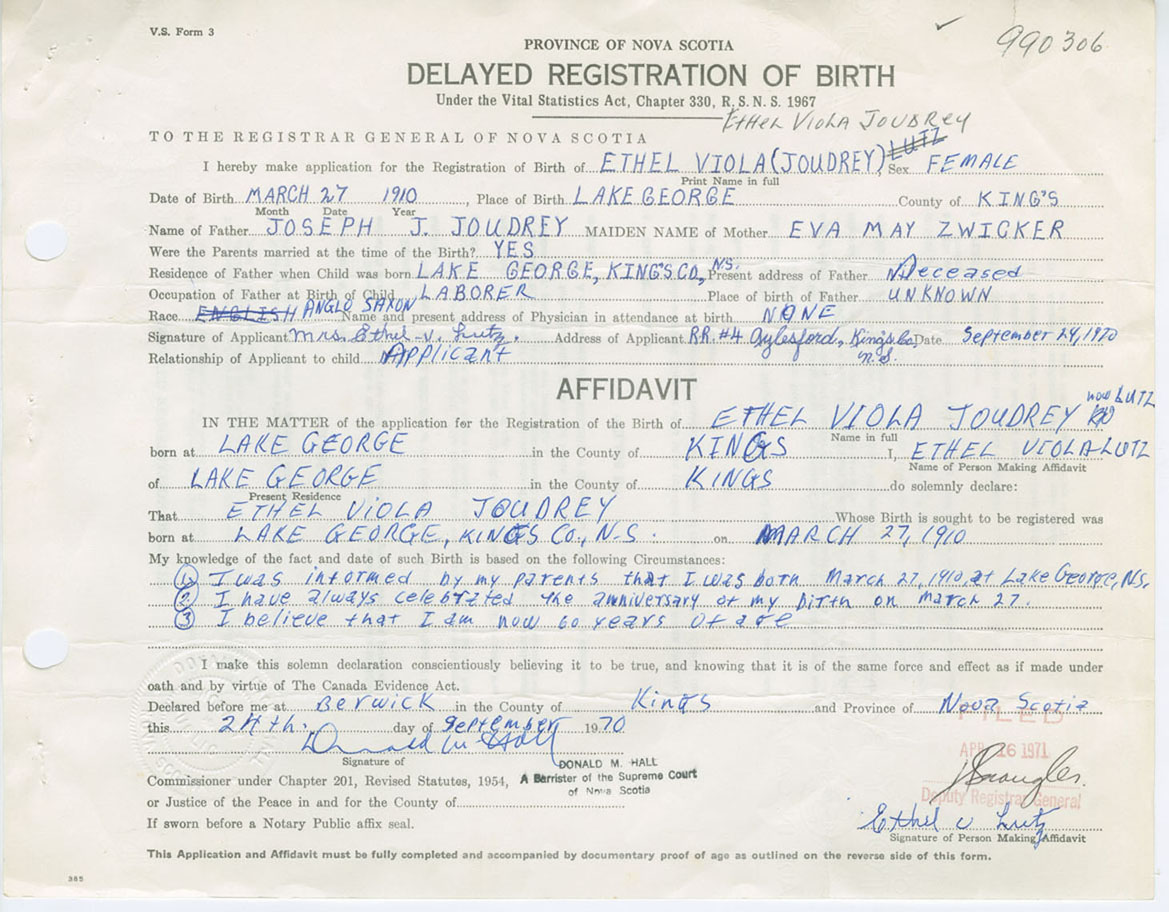 V.S. Form 3
990306
PROVINCE OF NOVA SCOTIA
DELAYED REGISTRATION OF BIRTH
Under the Vital Statistics Act, Chapter 330, R.S.N.S. 1967
Ethel Viola Joudrey
TO THE REGISTRAR GENERAL OF NOVA SCOTIA
I hereby make application for the Registration of Birth of ETHEL VIOLA (JOUDREY) LUTZ Sex FEMALE
Print Name in full
Date of Birth MARCH 27 1910, Place of Birth LAKE GEORGE County of KING'S
Month Date Year
Name of Father JOSEPH J. JOUDREY MAIDEN NAME of Mother EVA MAY ZWICKER
Were the Parents married at the time of the Birth? YES
Residence of Father when Child was born LAKE GEORGE, KING'S CO., N.S. Present address of Father Deceased
Occupation of Father at Birth of Child LABORER Place of birth of Father UNKNOWN
Race ENGLISH ANGLO SAXON Name and present address of Physician in attendance at birth NONE
Signature of Applicant Mrs. Ethel V. Lutz. Address of Applicant RR. #4 Aylesford, King's Co. N.S. Date September 24, 1970
Relationship of Applicant to child Applicant
AFFIDAVIT
IN THE MATTER of the application for the Registration of the Birth of ETHEL VIOLA JOUDREY now LUTZ
Name in full
born at LAKE GEORGE in the County of KINGS I, ETHEL VIOLA LUTZ
Name of Person Making Affidavit
of LAKE GEORGE in the County of KINGS do solemnly declare:
Present Residence
That ETHEL VIOLA JOUDREY Whose Birth is sought to be registered was
born at LAKE GEORGE, KINGS CO., N.S. on MARCH 27, 1910
My knowledge of the fact and date of such Birth is based on the following Circumstances:
1. I was informed by my parents that I was born March 27, 1910, at Lake George, N.S.
2. I have always celebrated the anniversary of my birth on March 27.
3 I believe that I am now 60 years of age
I make this solemn declaration conscientiously believing it to be true, and knowing that it is of the same force and effect as if made under
oath and by virtue of The Canada Evidence Act.
Declared before me at Berwick in the County of Kings and Province of Nova Scotia
this 24th. day of September 1970
FILED
APR 16 1971
Deputy Registrar General
Donald M Hall
Signature of
DONALD M. HALL
A Barrister of the Supreme Court
of Nova Scotia
Commissioner under Chapter 201, Revised Statutes, 1954,
or Justice of the Peace in and for the County of
If sworn before a Notary Public affix seal.
Ethel V Lutz
Signature of Person Making Affidavit
This Application and Affidavit must be fully completed and accompanied by documentary proof of age as outlined on the reverse side of this form.
385